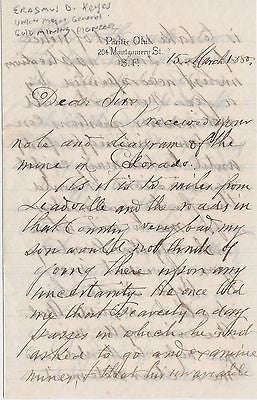 ERASMUS D. KEYES
UNION MAJOR GENERAL
GOLD MINING PIONEER
Pacific Club,
204 Montgomery St.
S. F.
15 March 1880.
Dear Sir,
I received your
note and diagram of the
mine in Colorado.
As it is miles from
Leadville and the roads in
that Country very bad, my
son would not think of
going there upon any
uncertainty. He once told
me that scarcely a day
passes in which he is not
asked to go and examine
mines, & that his invariable